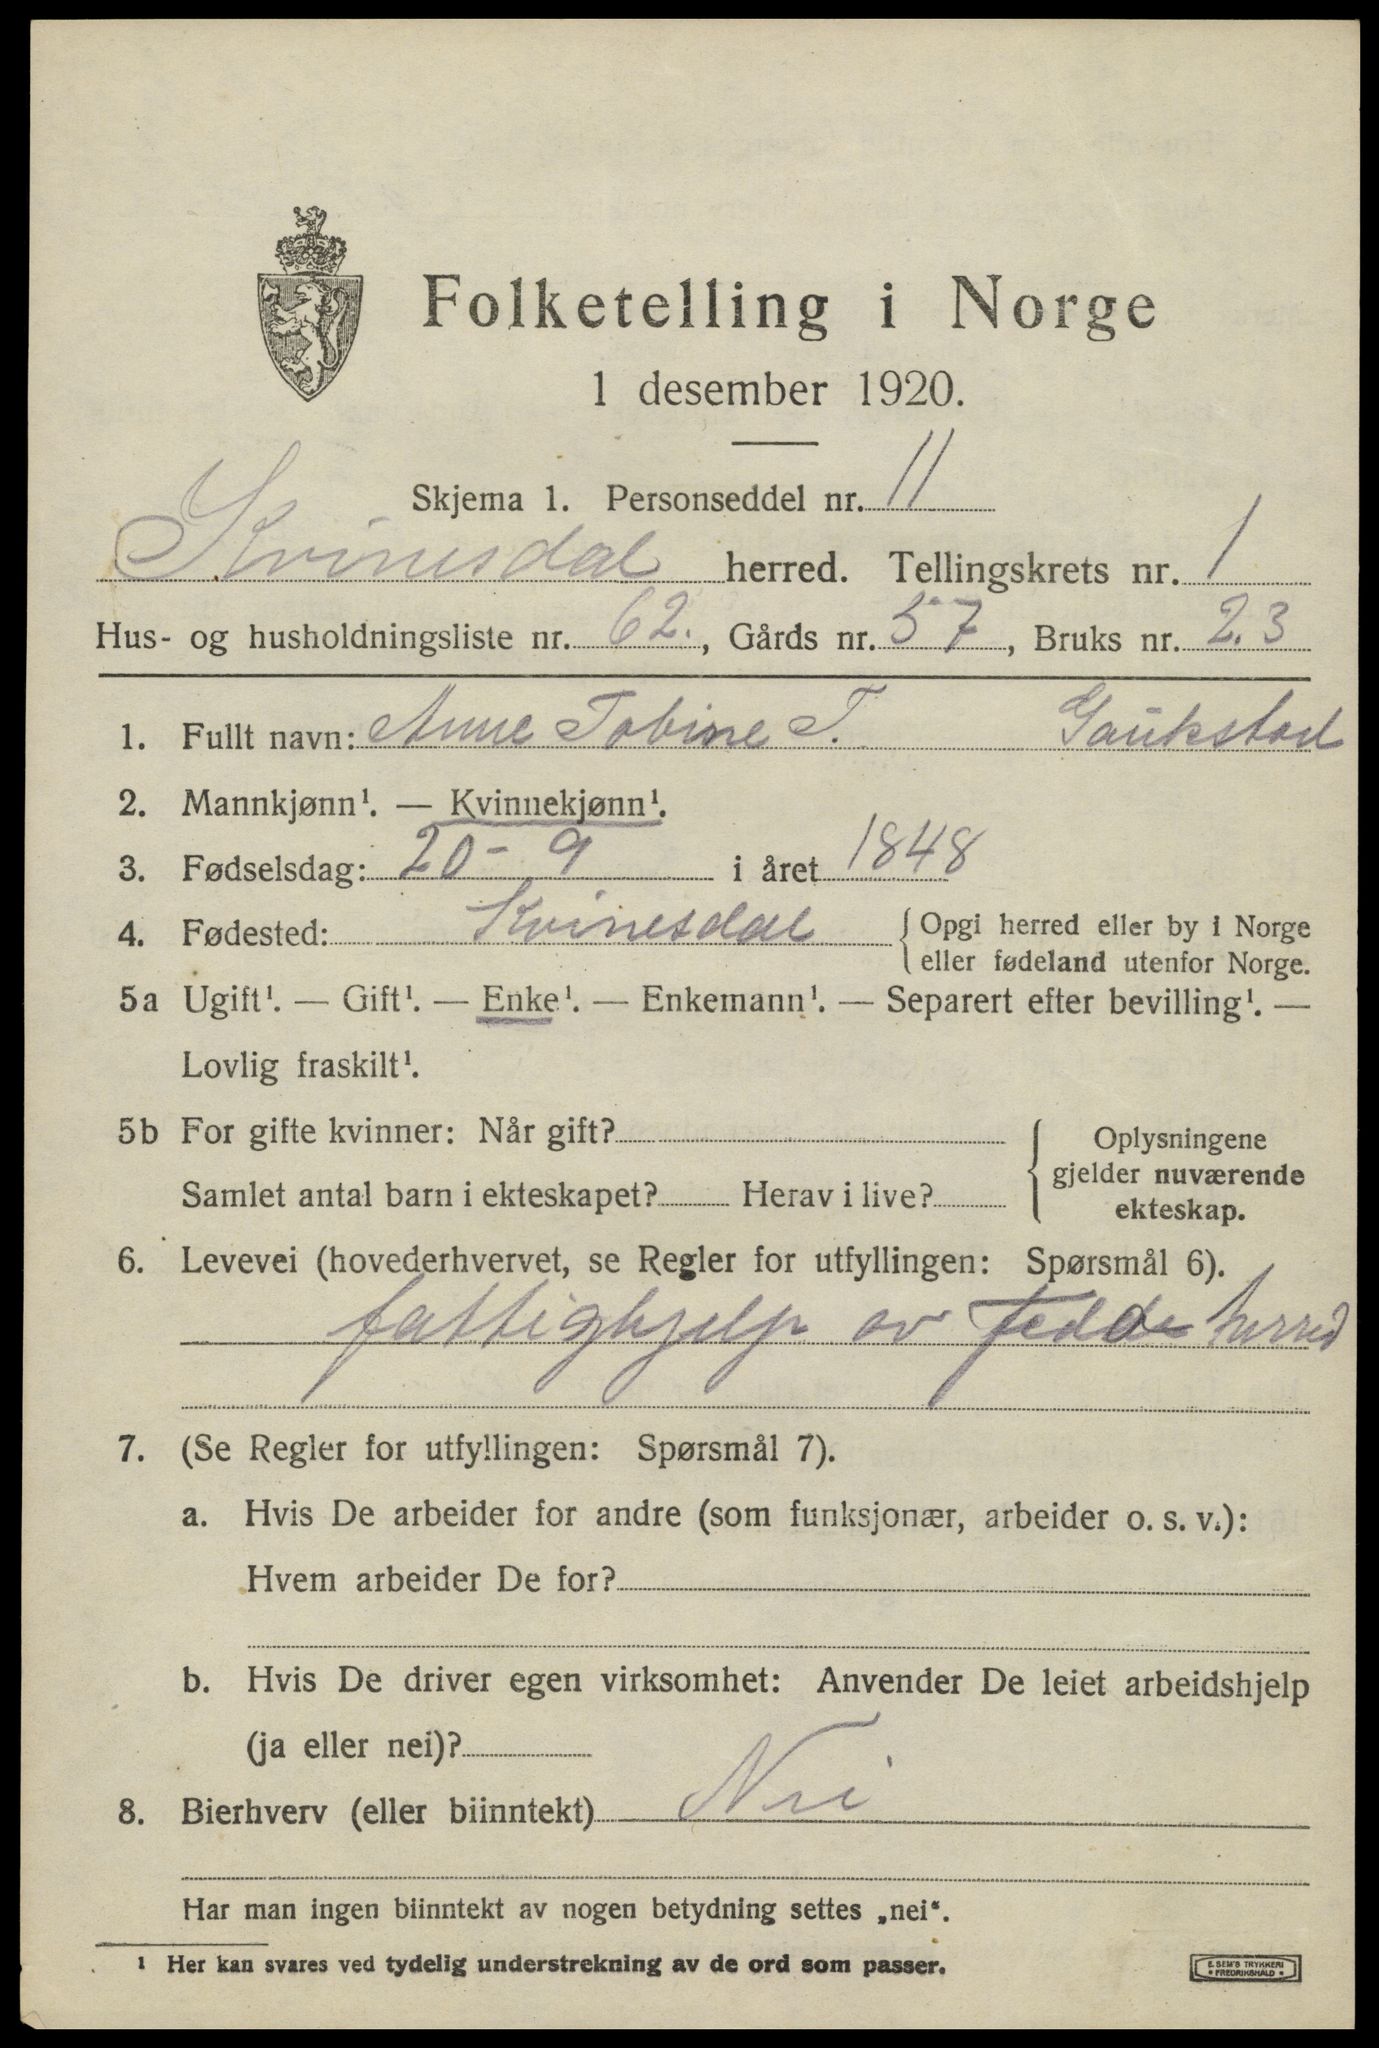 Folketelling i Norge
1 desember 1920.
Skjema 1. Personseddel nr. 11
Kvinesdal herred. Tellingskrets nr. 1
Hus- og husholdningsliste nr. 62., Gårds nr. 57, Bruks nr. 2.3
1. Fullt navn: Anne Tobine T. Gaukstad
2. Mannkjønn¹. — Kvinnekjønn¹.
3. Fødselsdag: 20 - 9 i året 1848
4. Fødested: Kvinesdal { Opgi herred eller by i Norge
eller fødeland utenfor Norge.
5a Ugift¹. — Gift¹. — Enke¹. — Enkemann¹. — Separert efter bevilling¹. —
Lovlig fraskilt¹.
5b For gifte kvinner: Når gift? { Oplysningene
gjelder nuværende
Samlet antal barn i ekteskapet? Herav i live? ekteskap.
6. Levevei (hovederhvervet, se Regler for utfyllingen: Spørsmål 6).
fattighjelp av Fedde herred
7. (Se Regler for utfyllingen: Spørsmål 7).
a. Hvis De arbeider for andre (som funksjonær, arbeider o. s. v.):
Hvem arbeider De for?
b. Hvis De driver egen virksomhet: Anvender De leiet arbeidshjelp
(ja eller nei)?
8. Bierhverv (eller biinntekt) Nei
Har man ingen biinntekt av nogen betydning settes „nei“.
¹ Her kan svares ved tydelig understrekning av de ord som passer.
E. SEM'S TRYKKERI
• FREDRIKSHALD •